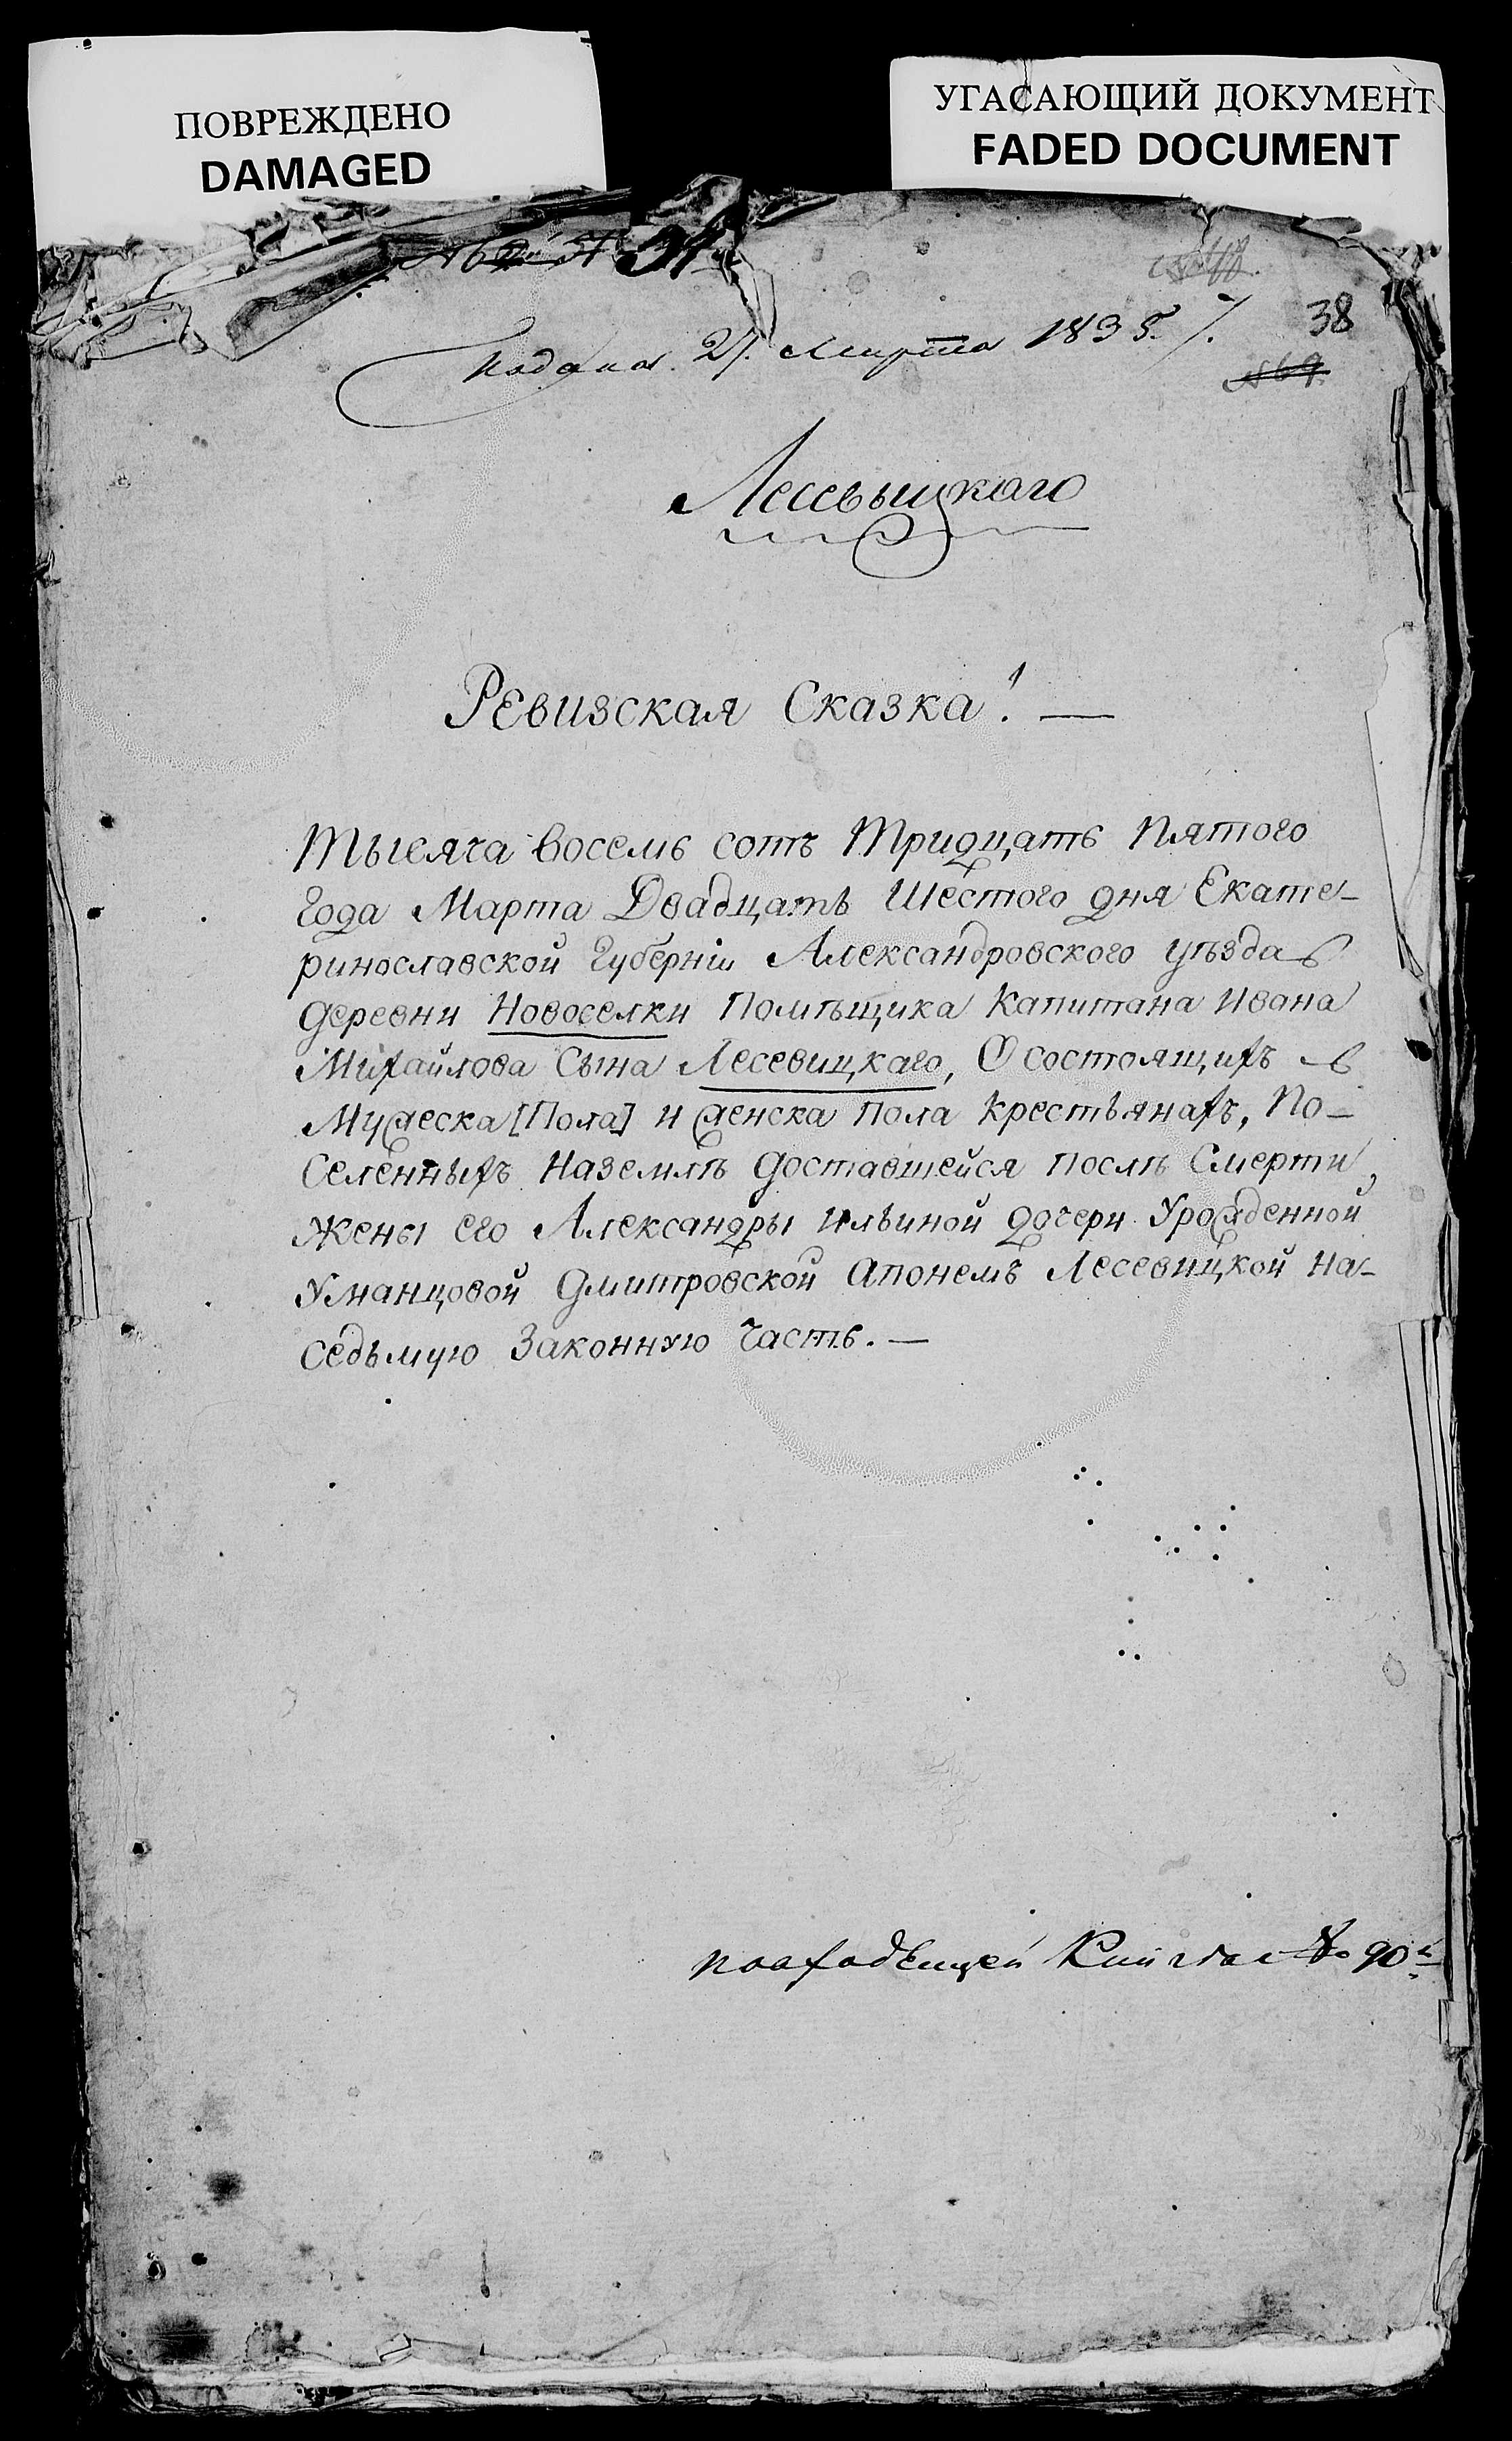 ПОВРЕЖДЕНО
DAMAGED
УГАСАЮЩИЙ ДОКУМЕНТ
FADED DOCUMENT
38
Подана 27. Марта 1835.
№ 69.
Лесевицкаго
Ревизская Сказка! —
Тысяча восемь сотъ Тридцать Пятого
Года Марта Двадцать Шестого дня Екате-
ринославской Губерніи Александровского уѣзда
деревни Новоселки Помѣщика Капитана Ивана
Михайлова Сына Лесевицкаго, О состоящихъ в
Мужеска [Пола] и женска пола крестьянахъ, По-
Селенныхъ Наземлѣ доставшейся послѣ Смерти,
Жены его Александры Ильиной дочери Урожденной
Уманцовой Дмитровской Апонемъ Лесевицкой На-
седьмую Законную Часть. —
повходящей Книги № 90й